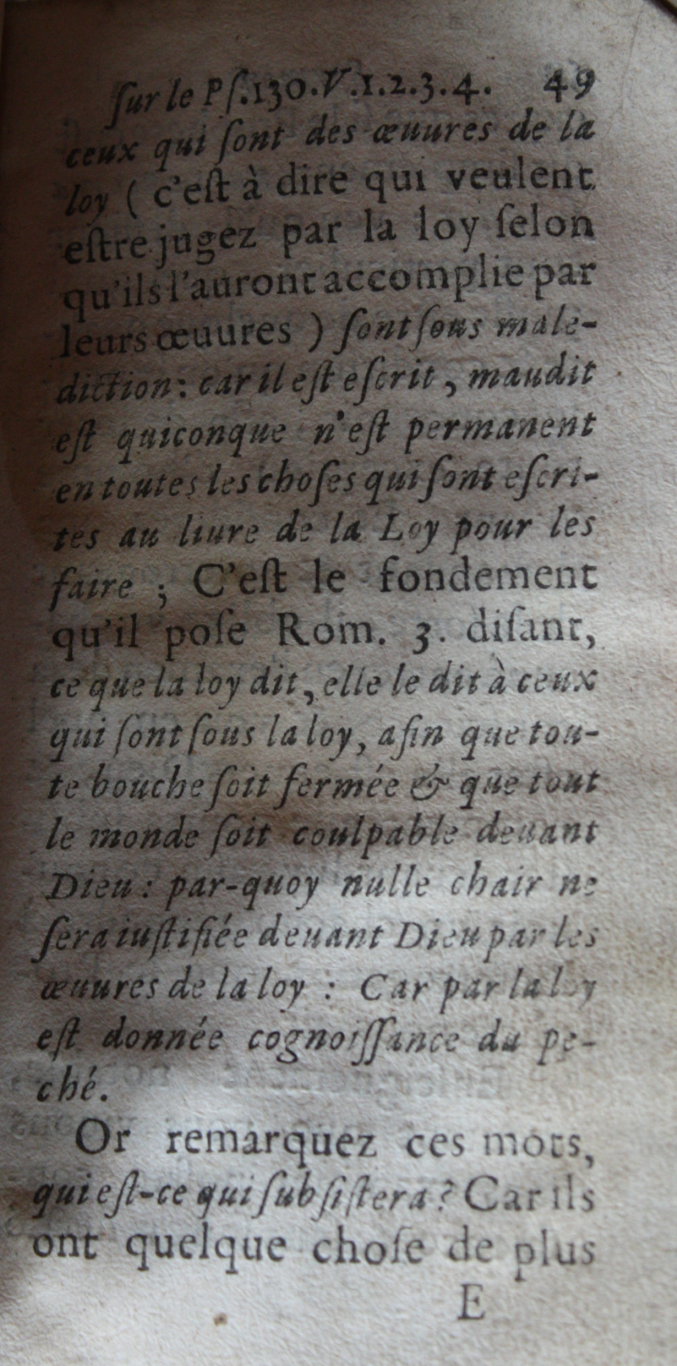 ſur le Pſ.130.V.1.2.3.4. 49
ceux qui ſont des œuures de la
loy ( c'eſt à dire qui veulent
eſtre jugez par la loy ſelon
qu'ils l'auront accomplie par
leurs œuures ) ſont ſous male-
diction: car il eſt eſcrit, maudit
eſt quiconque n'eſt permanent
en toutes les choſes qui ſont eſcri-
tes au liure de la Loy pour les
faire ; C'eſt le fondement
qu'il poſe Rom. 3. diſant,
ce que la loy dit, elle le dit à ceux
qui ſont ſous la loy, afin que tou-
te bouche ſoit fermée & que tout
le monde ſoit coulpable deuant
Dieu : par-quoy nulle chair ne
ſera iuſtifiée deuant Dieu par les
œuures de la loy : Car par la loy
eſt donnée cognoiſſance du pe-
ché.
Or remarquez ces mots,
qui eſt-ce qui ſubſiſtera? Car ils
ont quelque choſe de plus
E